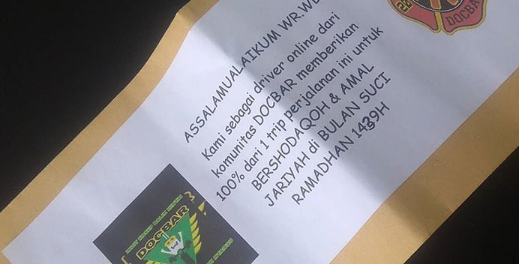 ASSALAMUALAIKUM WR.WB
Kami sebagai driver online dari
komunitas DOCBAR memberikan
100% dari 1 trip perjalanan ini untuk
BERSHODAQOH & AMAL
JARIYAH di BULAN SUCI
RAMADHAN 1439H
DOCBAR
DOCBAR